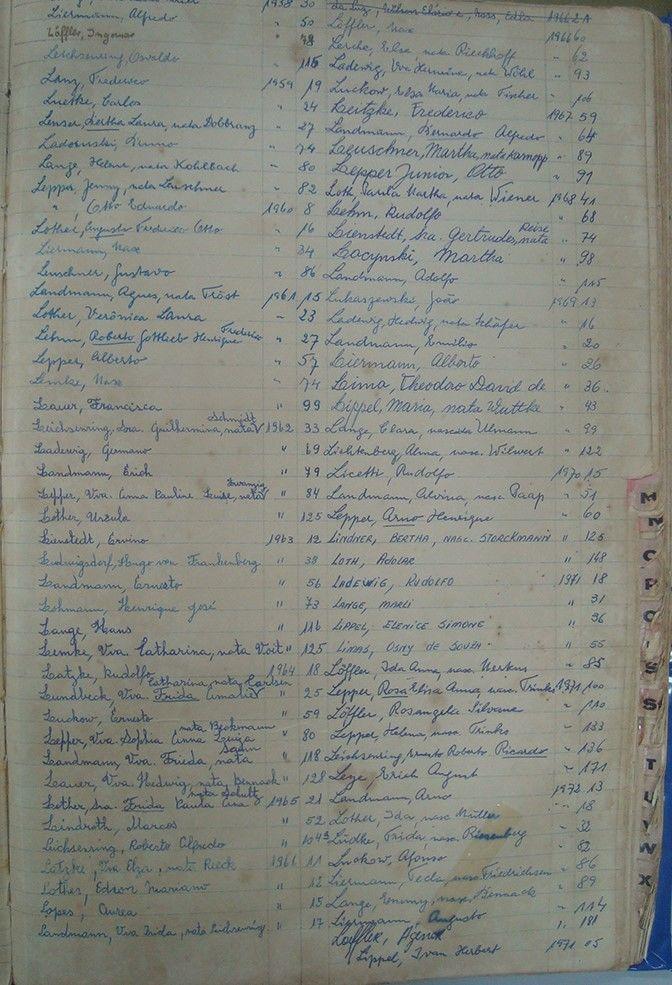 1958 30
Liermann, Alfredo " 50
Löffler, Ingomar " 78
Leichsenring, Oswaldo " 115
Lanz, Frederico 1959 19
Luetke, Carlos " 24
Lenser, Hertha Laura, nata Dobbranz " 27
Ladorinski, Bruno " 74
Lange, Helene, nata Kohlbach " 80
Lepper, Jenny, nata Leuschner " 82
" , Otto Eduardo 1960 8
Lother, Augusto Frederico Otto " 16
Liermann, Max " 34
Leuschner, Gustavo " 86
Landmann, Agnes, nata Tröst 1961 15
Lother, Verônica Laura " 23
Lehm, Roberto Gottlieb Henrique Frederico " 27
Lepper, Alberto " 57
Lemke, Max " 74
Lauer, Francisca " 99
Leichsenring, Sra. Guilhermina, nata Schmidt 1962 33
Ladewig, Germano " 69
Landmann, Erich " 79
Lepper, Viva. Anna Pauline Luise, nata " 84
Lother, Ursula " 125
Lienstedt, Ervino 1963 12
Ludwigsdorf, Hugo von Frankenberg " 38
Landmann, Ernesto " 56
Lohmann, Henrique José " 73
Lange, Hans " 116
Lemke, Viva. Catharina, nata Voit " 125
Latzke, Rudolfo 1964 18
Lundbeck, Viva. Frida Amalie Catharina, nata Carlsen " 25
Luckow, Ernesto " 59
Lepper, Viva Sophia Anna Luiza nata Beckmann " 80
Landmann, Viva. Frieda, nata " 118
Lauer, Viva. Hedwig, nata Bennack " 128
Lother, Sra. Frida Paula Ana nata Schutt 1965 21
Leindroth, Marcos " 52
Leichsenring, Roberto Alfredo " 104
Latzke, Viva Elza, nata Reeck 1966 11
Lother, Edson Mariano " 12
Lopes, Aurea " 15
Landmann, Viva Frida, nata Leichsenring " 17
1966 21
Löffler, Max 1966 60
Lerche, Elsa nata Pieckhoff " 62
Ladewig, Vva Hermine, nata Wöhl " 93
Luckow, Elsa Maria, nata Fischer " 106
Leitzke, Frederico 1967 59
Landmann, Bernardo Alfredo " 64
Leuschner, Martha, nata Kamopp " 89
Lepper Junior, Otto " 91
Loth, Paula Martha, nata Wiener 1968 41
Lehm, Rudolfo " 68
Lienstedt, Sra. Gertrudes, nata Reise " 74
Lacynski, Martha " 98
Landmann, Adolfo " 115
Lukaszewski, João 1969 13
Ladewig, Hedwig, nata Schäfer " 16
Landmann, Emilio " 20
Liermann, Alberto " 26
Lima, Theodoro David de " 36
Lippel, Maria, nata Wuttke " 43
Lange, Clara, nascida Ulmann " 99
Lichtenberg, Alma, nasc. Wilwert " 122
Licetti, Rudolfo 1970 15
Landmann, Alvina, nasc. Paap " 51
Leppel, Arno Henrique " 60
LINDNER, BERTHA, NASC. STORCKMANN " 125
LOTH, ADOLAR " 148
LADEWIG, RUDOLFO 1971 18
LANGE, MARLI " 31
LIPPEL, ELENICE SIMONE " 36
LIMAS, OSNY DE SOUZA " 55
Löffler, Ida Anna, nasc. Merkus " 85
Lepper, Rosa Elisa Anna, nasc. Trinks 1971 100
Löffler, Rosangela Silvana " 110
Leppel, Helena, nasc. Trinks " 133
Leichsenring, Ernesto Roberto Ricardo " 136
Leze, Erich August " 171
Landmann, Arno 1972 13
Lother, Ida, nasc. Müller " 18
Lüdke, Frida, nasc. Riesenberg " 32
Luckow, Afonso " 52
Liermann, Tecla, nasc. Friedrichsen " 86
Lange, Emmy, nasc. Bennack " 89
Liermann, Augusto " 114
Loeffler, Agenor " 181
Lippel, Ivan Herbert 1971 05
M
N
O
P
Q
S
T
U
V
W
X